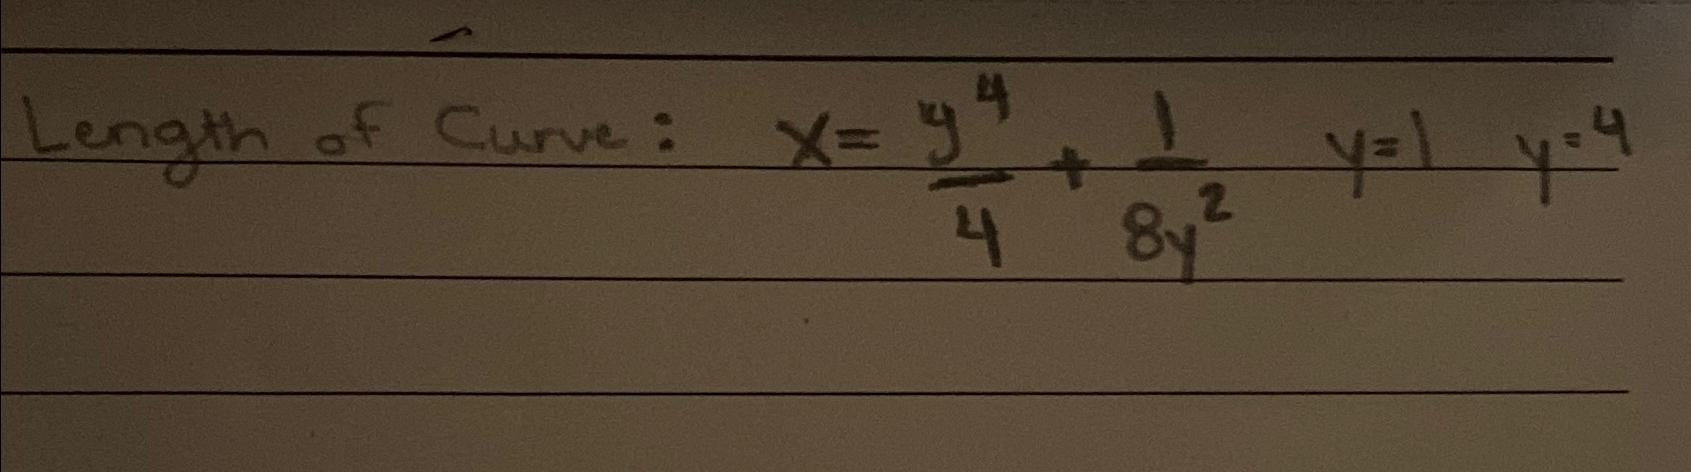 Length of Curve: x = y^4/4 + 1/8y^2 y=1 y=4